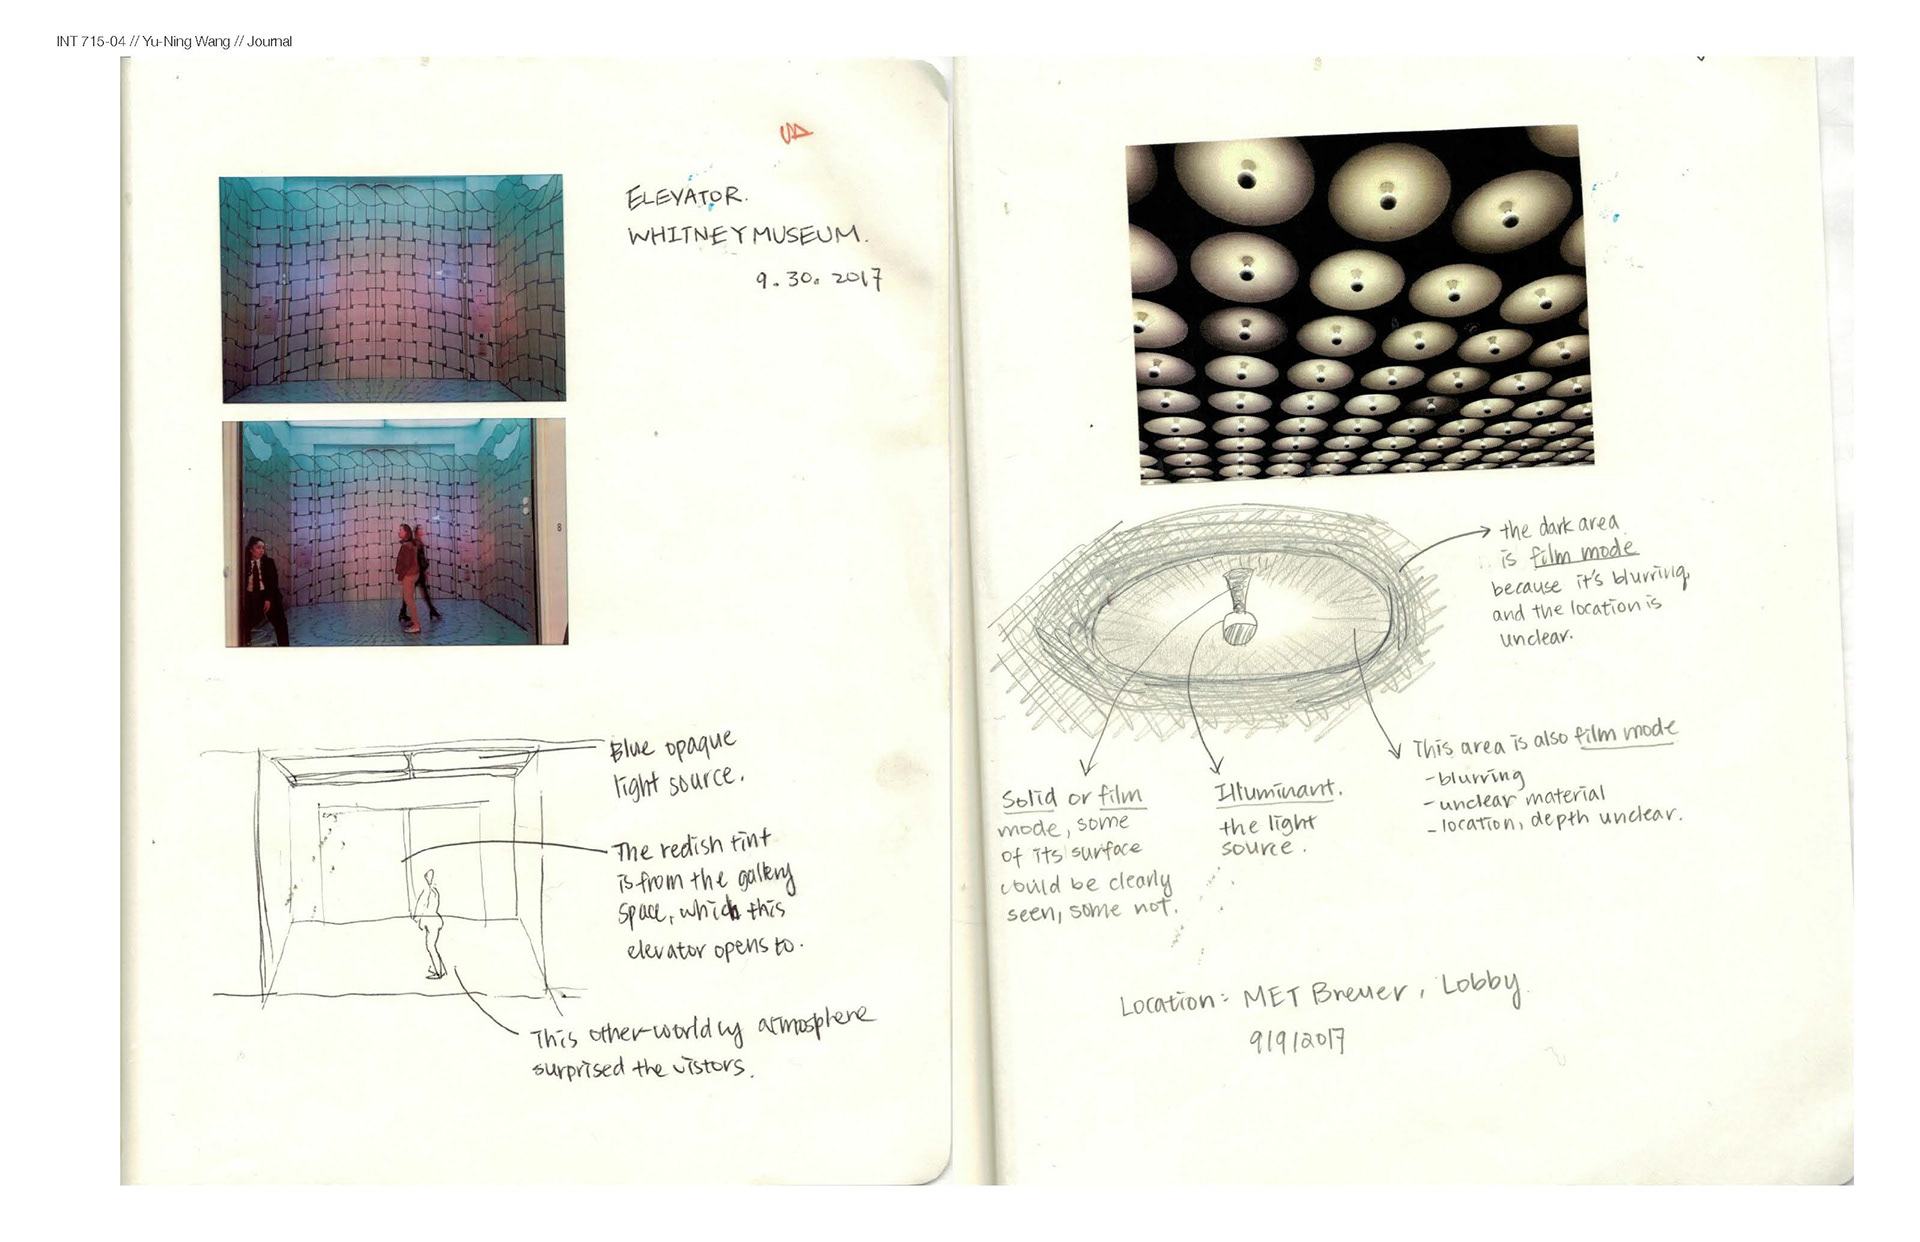 INT 715-04 // Yu-Ning Wang // Journal
ELEVATOR.
WHITNEY MUSEUM.
9.30.2017
8
Blue opaque
light source.
The redish tint
is from the gallery
space, which this
elevator opens to.
This other-worldly atmosphere
surprised the vistors.
the dark area
is film mode
because it's blurring,
and the location is
unclear.
Solid or film
mode, some
of its surface
could be clearly
seen, some not.
Illuminant.
the light
source.
This area is also film mode
-blurring
-unclear material
-location, depth unclear.
Location: MET Breuer, Lobby.
9/9/2017